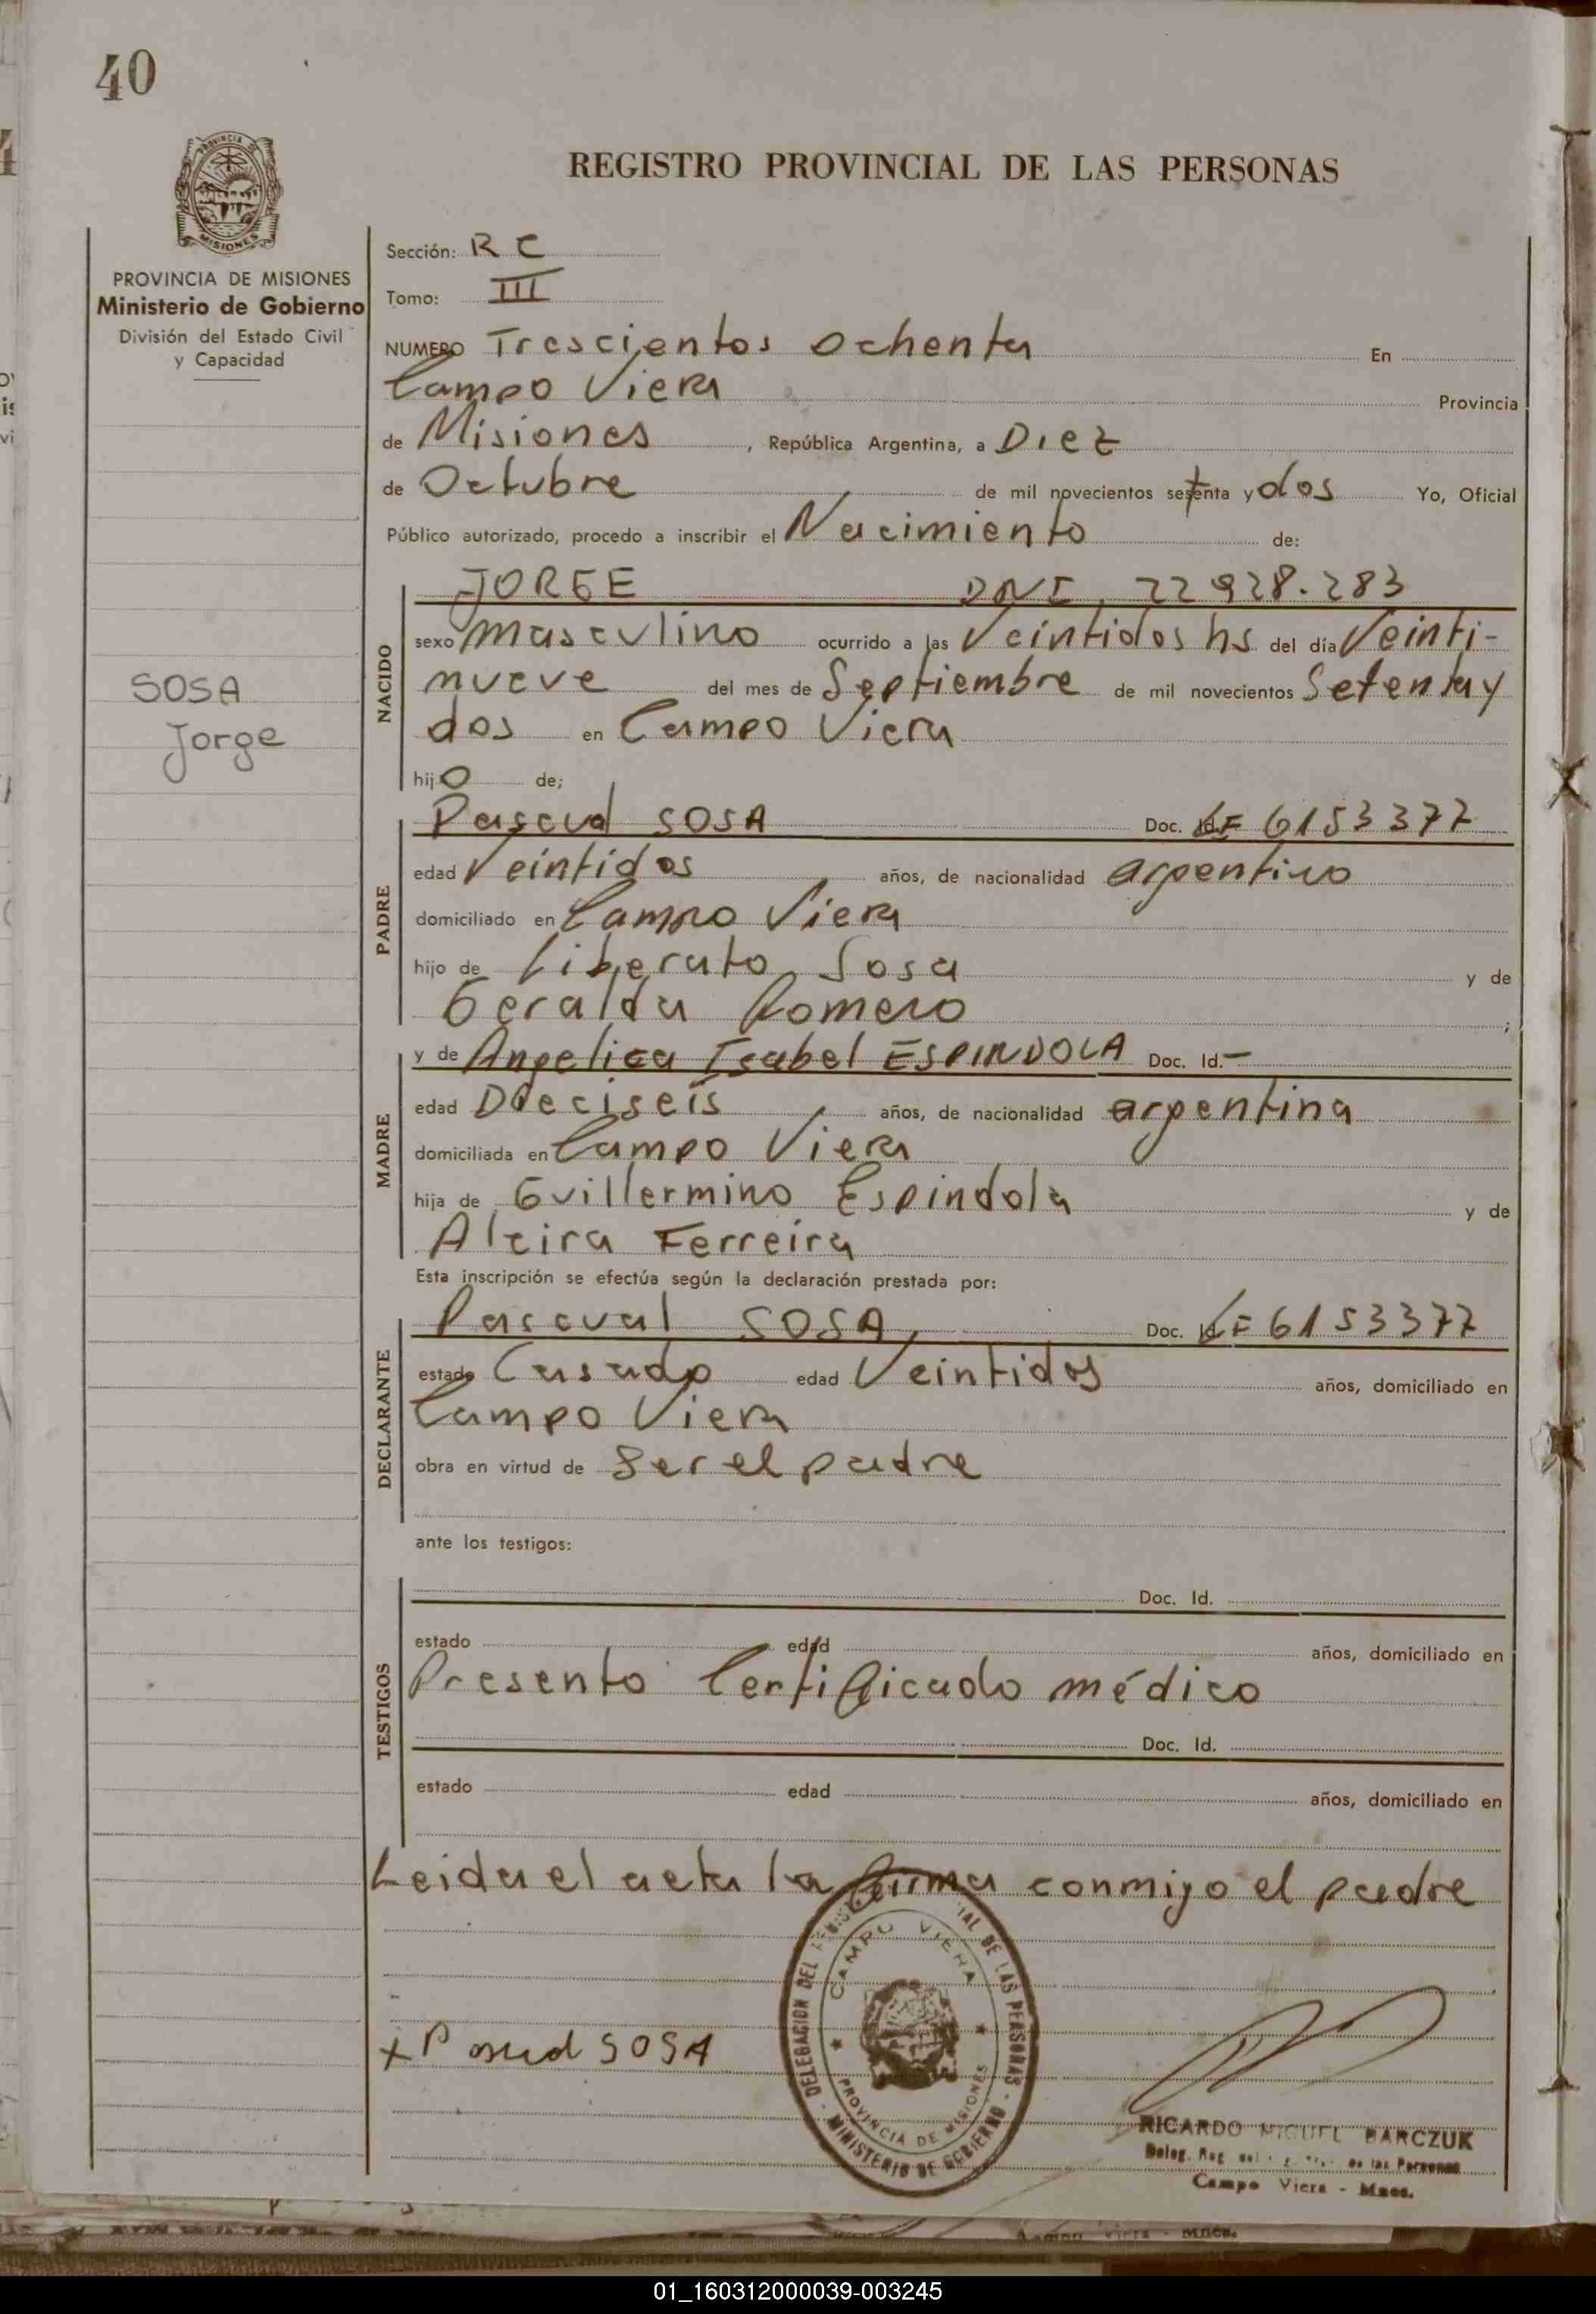 40
PROVINCIA DE
MISIONES
PROVINCIA DE MISIONES
Ministerio de Gobierno
División del Estado Civil
y Capacidad
SOSA
Jorge
REGISTRO PROVINCIAL DE LAS PERSONAS
Sección: R C
Tomo: III
NUMERO Trescientos ochenta En
Campo Viera Provincia
de Misiones, República Argentina, a Diez
de Octubre de mil novecientos setenta y dos Yo, Oficial
Público autorizado, procedo a inscribir el Nacimiento de:
NACIDO
JORGE DNI. 22 928.283
sexo masculino ocurrido a las Veintidos hs del día Veinti-
nueve del mes de Septiembre de mil novecientos Setenta y
dos en Campo Viera
hijo de;
PADRE
Pascual SOSA Doc. LE 6153377
edad Veintidos años, de nacionalidad argentino
domiciliado en Campo Viera
hijo de Liberato Sosa y de
Geralda Romero ;
MADRE
y de Angelica Isabel ESPINDOLA Doc. Id. -
edad Dieciseis años, de nacionalidad argentina
domiciliada en Campo Viera
hija de Guillermino Espindola y de
Alcira Ferreira
Esta inscripción se efectúa según la declaración prestada por:
DECLARANTE
Pascual SOSA Doc. LE 6153377
estado Casado edad Veintidos años, domiciliado en
Campo Viera
obra en virtud de Ser el padre
ante los testigos:
TESTIGOS
Doc. Id.
estado edad años, domiciliado en
Presento Certificado médico
Doc. Id.
estado edad años, domiciliado en
Leida el acta la firma conmigo el padre
DELEGACION DEL REGISTRO PROVINCIAL DE LAS PERSONAS
CAMPO VIERA
PROVINCIA DE MISIONES
- MINISTERIO DE GOBIERNO -
x Pascual SOSA
RICARDO MIGUEL BARCZUK
Deleg. Reg. de las Personas
Campo Viera - Mnes.
Campo Viera - Mnes.
01_160312000039-003245